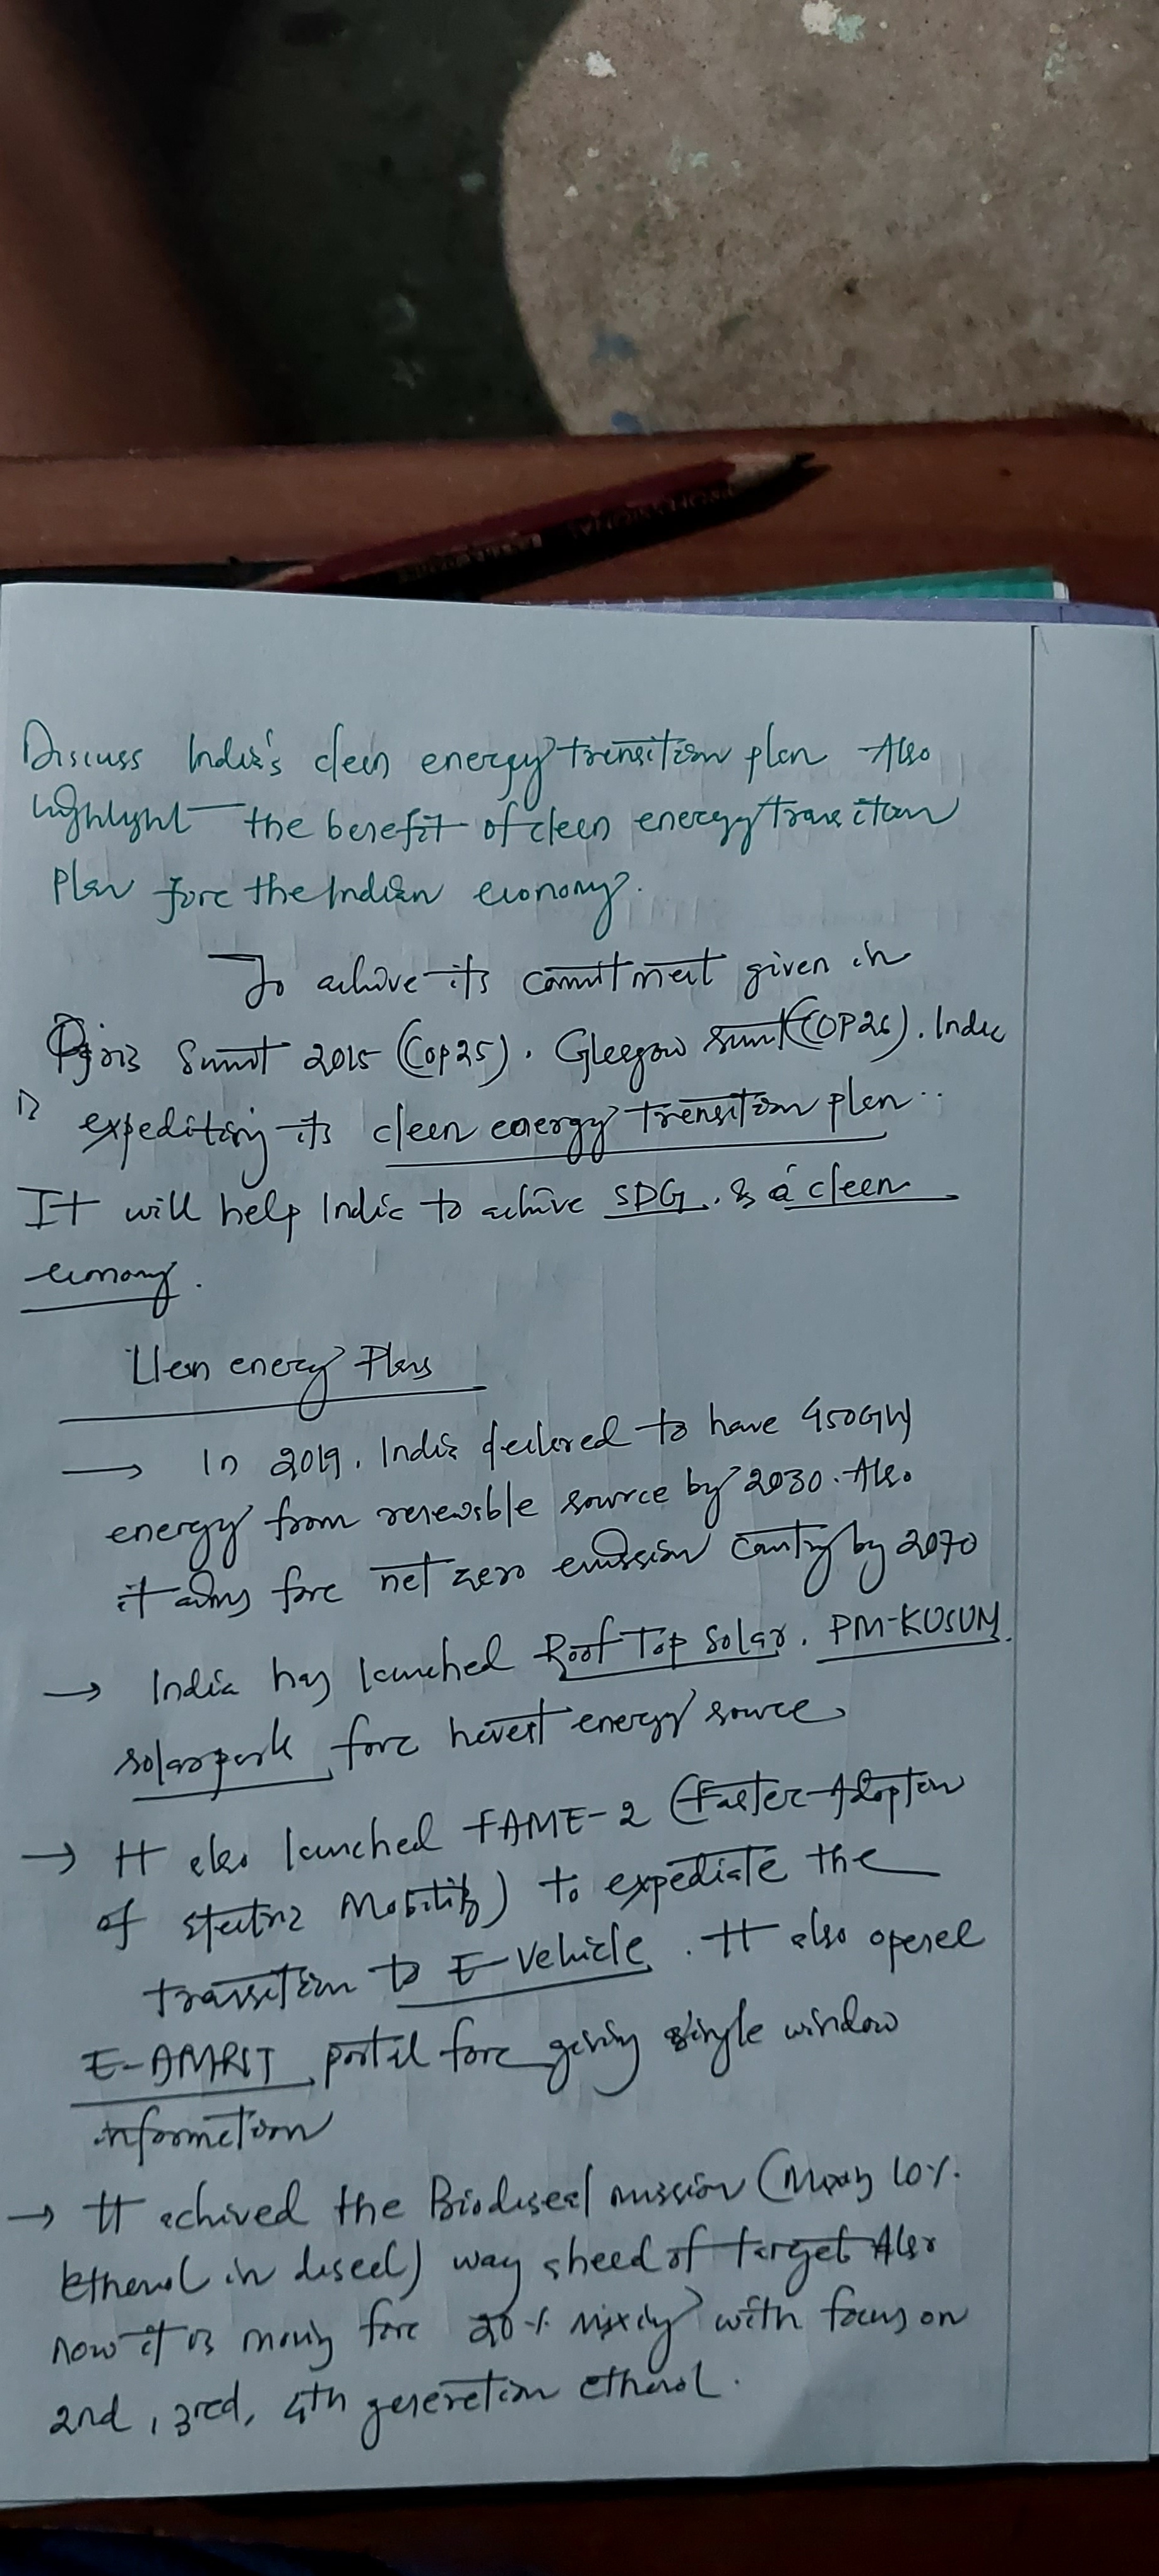 Discuss India's clean energy transition plan Also
highlight the benefit of clean energy transition
plan fore the Indian economy.
To achive its comittment given in
Paris Summit 2015 (Cop25). Glasgow Summit (COP26). India
is expediting its clean energy transition plan..
It will help India to achive SDG. & a clean
economy.
Clean energy Plans
→ In 2019, India declared to have 450GW
energy from renewable source by 2030. Also
it aims fore net zero emission country by 2070
→ India has launched Roof Top Solar, PM-KUSUM.
solarpark fore hervest energy source
→ It also launched FAME-2 (Faster Adoption
of Electric Mobility) to expediate the
transition to E-Vehicle. It also opened
E-AMRIT portal fore giving single window
information
→ It achived the Biodiseel mission (Mixing 10%
Ethenol in diseel) way ahead of target Also
now it is moving fore 20% mixing with focus on
2nd, 3red, 4th generetion ethenol.